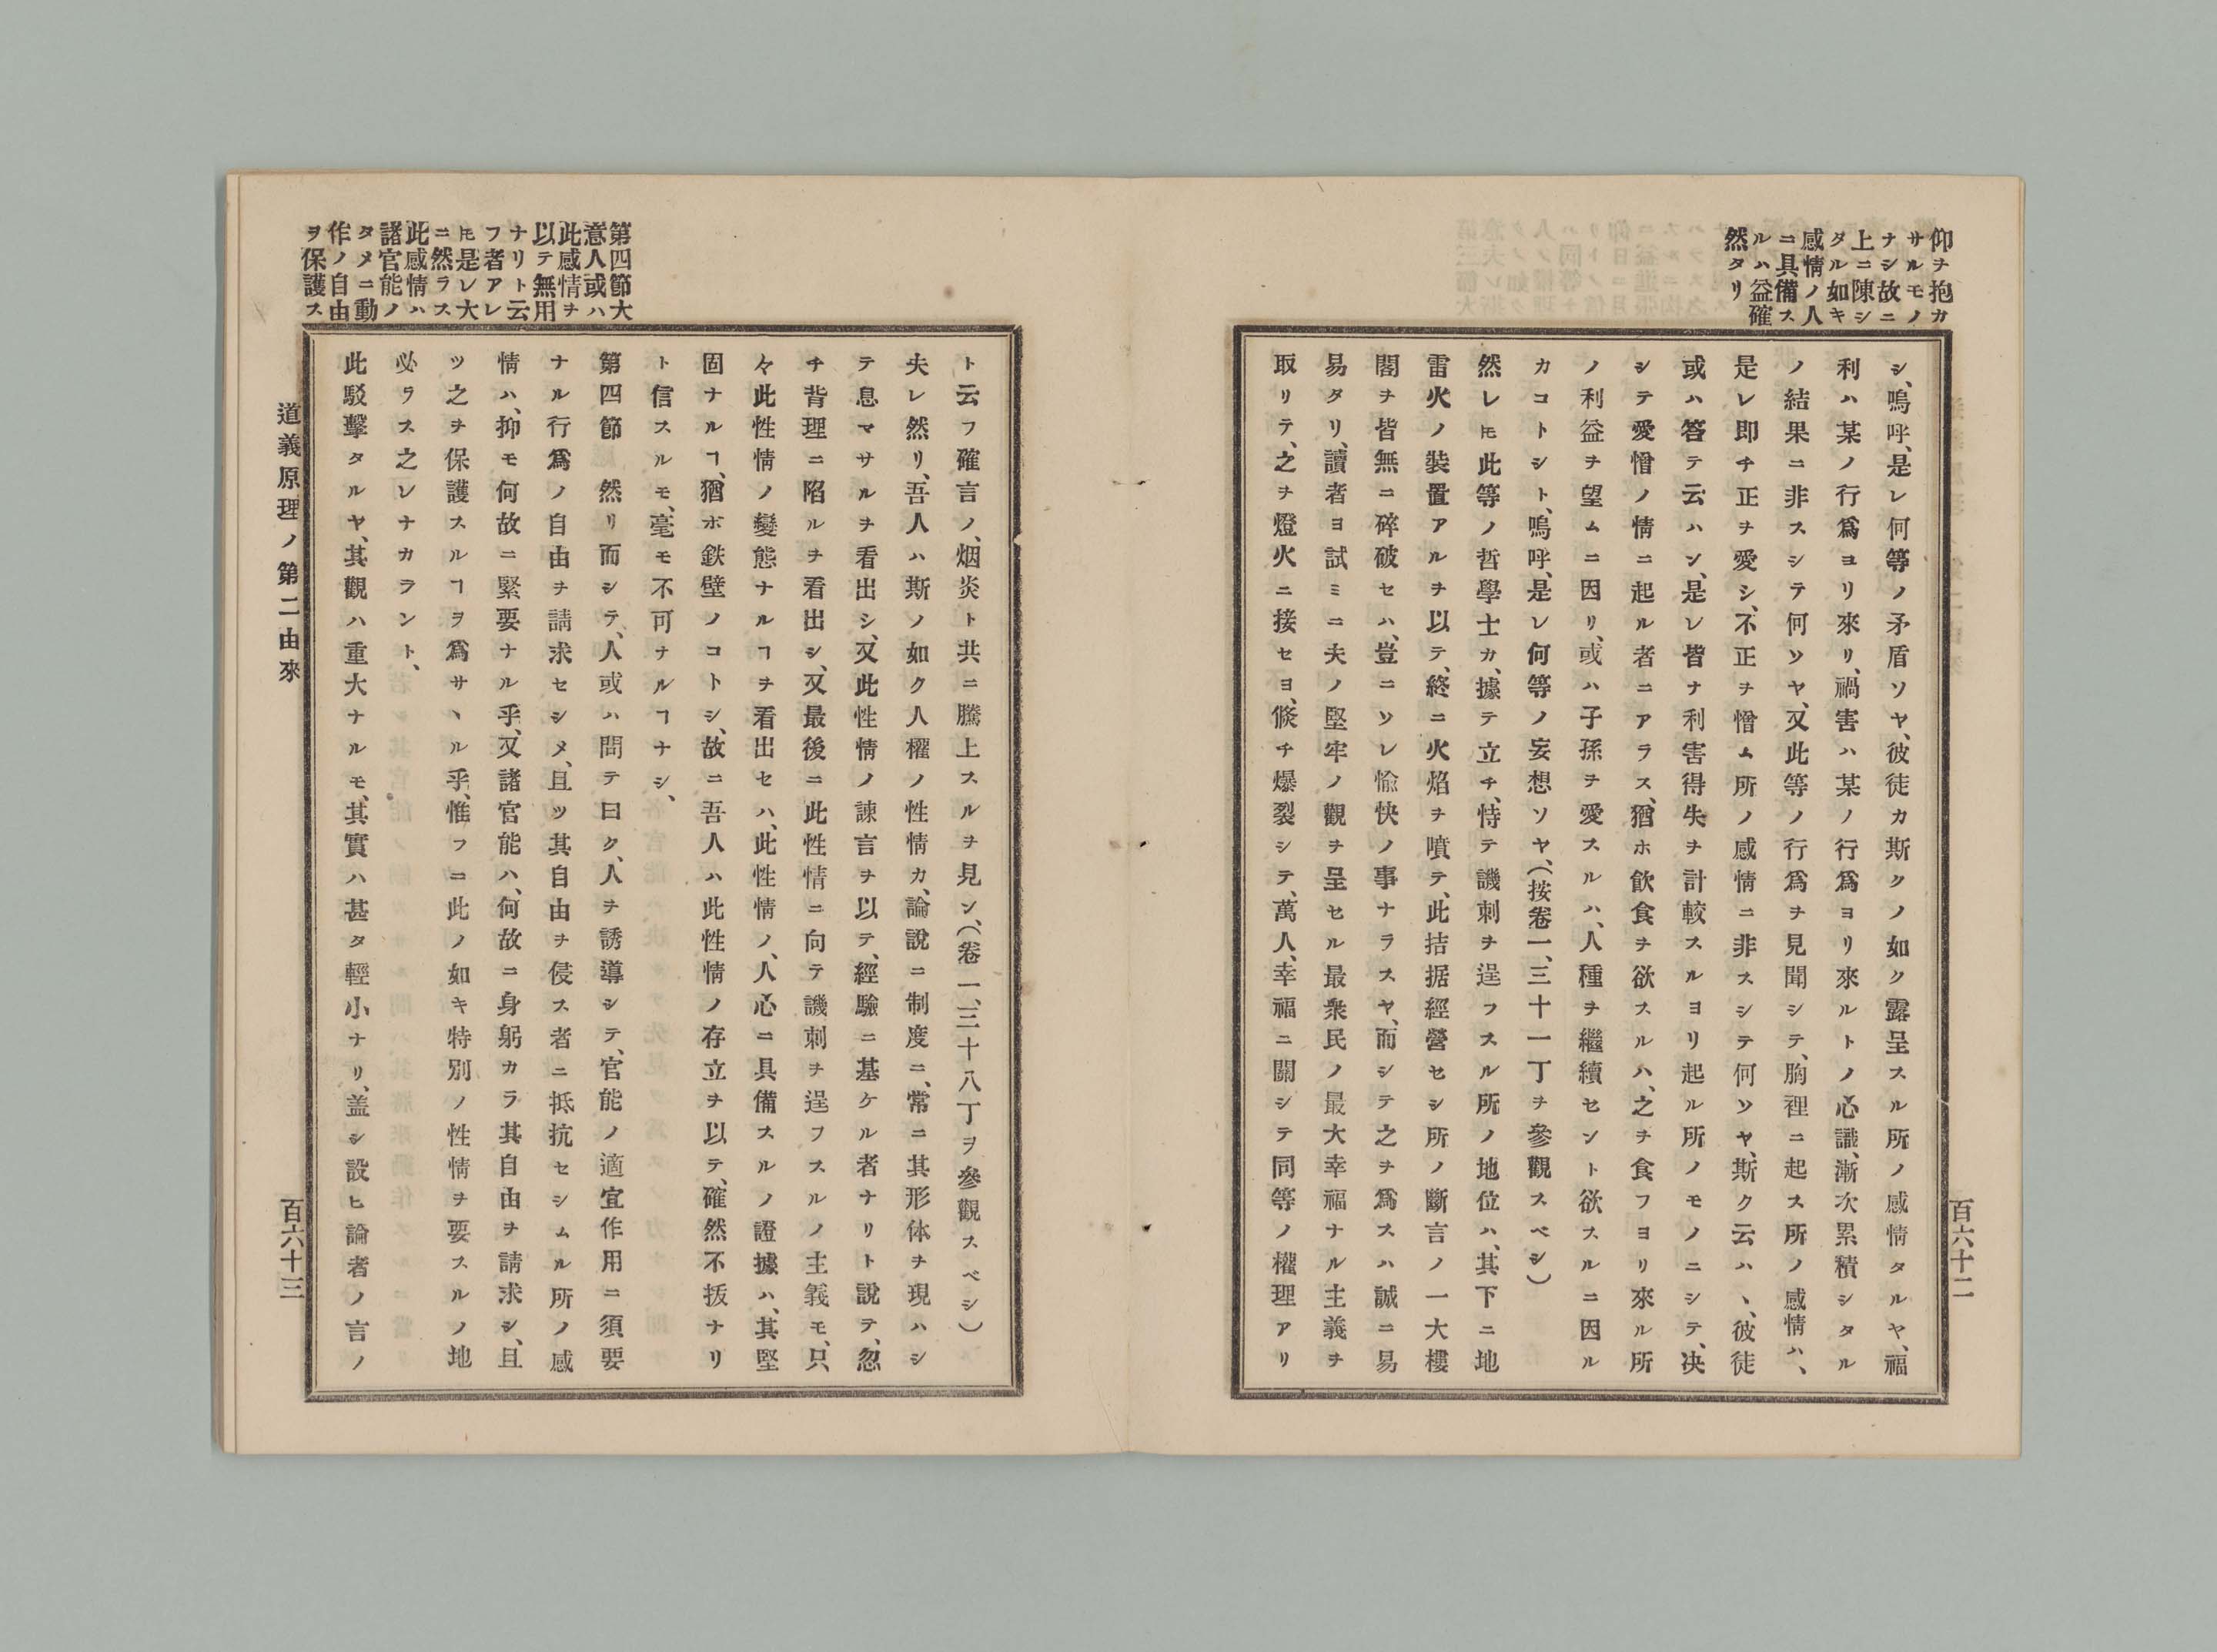 仰ヲ抱カ
サルモノ
ナシ故ニ
上ニ陳シ
タル如キ
感情ノ人
ニ具備ス
ルハ益確
然タリ
百六十二
シ、嗚呼、是レ何等ノ矛盾ソヤ、彼徒カ斯クノ如ク露呈スル所ノ感情タルヤ、福
利ハ某ノ行爲ヨリ來リ、禍害ハ某ノ行爲ヨリ來ルトノ心識、漸次累積シタル
ノ結果ニ非スシテ何ソヤ、又此等ノ行爲ヲ見聞シテ、胸裡ニ起ス所ノ感情ハ、
是レ即チ正ヲ愛シ、不正ヲ憎ム所ノ感情ニ非スシテ何ソヤ、斯ク云ハヽ、彼徒
或ハ答テ云ハン、是レ皆ナ利害得失ヲ計較スルヨリ起ル所ノモノニシテ、决
シテ愛憎ノ情ニ起ル者ニアラス、猶ホ飮食ヲ欲スルハ、之ヲ食フヨリ來ル所
ノ利益ヲ望ムニ因リ、或ハ子孫ヲ愛スルハ、人種ヲ繼續セント欲スルニ因ル
カコトシト、嗚呼、是レ何等ノ妄想ソヤ、(按卷一、三十一丁ヲ參觀スベシ)
然レ𪜈此等ノ哲學士カ、據テ立チ、恃テ譏刺ヲ逞フスル所ノ地位ハ、其下ニ地
雷火ノ裝置アルヲ以テ、終ニ火焰ヲ噴テ、此拮据經營セシ所ノ斷言ノ一大樓
閣ヲ皆無ニ碎破セハ、豈ニソレ愉快ノ事ナラスヤ、而シテ之ヲ爲スハ誠ニ易
易タリ、讀者ヨ試ミニ夫ノ堅牢ノ觀ヲ呈セル最衆民ノ最大幸福ナル主義ヲ
取リテ、之ヲ燈火ニ接セヨ、倐チ爆裂シテ、萬人、幸福ニ關シテ同等ノ權理アリ
ト云フ確言ノ、烟炎ト共ニ騰上スルヲ見ン、(卷一、三十八丁ヲ參觀スベシ)
夫レ然リ、吾人ハ斯ノ如ク人權ノ性情カ、論說ニ制度ニ、常ニ其形体ヲ現ハシ
テ息マサルヲ看出シ、又此性情ノ諫言ヲ以テ、經驗ニ基ケル者ナリト說テ、忽
チ背理ニ陷ルヲ看出シ、又最後ニ此性情ニ向テ譏刺ヲ逞フスルノ主義モ、只
々此性情ノ變態ナルヿヲ看出セハ、此性情ノ、人心ニ具備スルノ證據ハ、其堅
固ナルヿ、猶ホ鉄壁ノコトシ、故ニ吾人ハ此性情ノ存立ヲ以テ、確然不拔ナリ
ト信スルモ、毫モ不可ナルヿナシ、
第四節　然リ而シテ、人或ハ問テ曰ク、人ヲ誘導シテ、官能ノ適宜作用ニ須要
ナル行爲ノ自由ヲ請求セシメ、且ツ其自由ヲ侵ス者ニ抵抗セシムル所ノ感
情ハ、抑モ何故ニ緊要ナル乎、又諸官能ハ、何故ニ身躬カラ其自由ヲ請求シ、且
ツ之ヲ保護スルヿヲ爲サヽル乎、惟フニ此ノ如キ特別ノ性情ヲ要スルノ地
必ラス之レナカラント、
此駁擊タルヤ、其觀ハ重大ナルモ、其實ハ甚タ輕小ナリ、盖シ設ヒ論者ノ言ノ
第四節大
意人或ハ
此感情ヲ
以テ無用
ナリト云
フ者アレ
𪜈是レ大
ニ然ラス
此感情ハ
諸官能ノ
タメニ動
作ノ自由
ヲ保護ス
道義原理ノ第二由來
百六十三